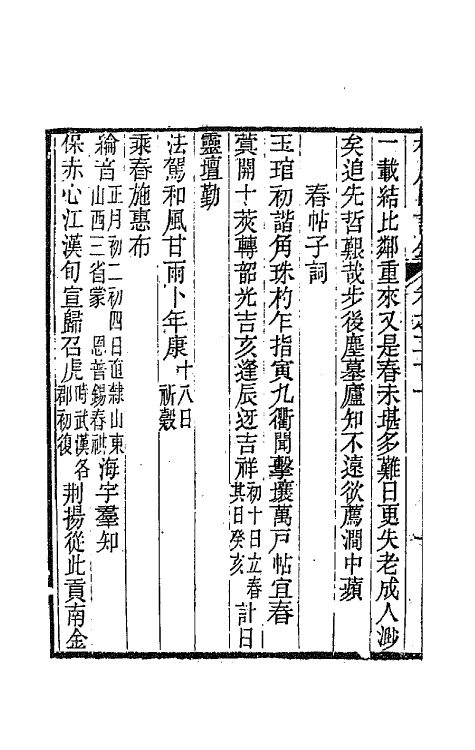 一載結比鄰重來又是春未堪多難日更失老成人渺
矣追先哲艱哉步後塵墓廬知不遠欲薦澗中蘋
春帖子詞
玉琯初諧角珠杓乍指寅九衢聞擊壤萬戸帖宜春
蓂開十莢轉韶光吉亥逢辰迓吉祥初十日立春其日癸亥計日
靈壇勤
法駕和風甘雨卜年康十八日祈穀
乘春施惠布
綸音正月初二初四日直隸山東山西三省蒙 恩普錫春祺海宇羣知
保赤心江漢旬宣歸召虎時武漢各郡初復荆揚從此貢南金